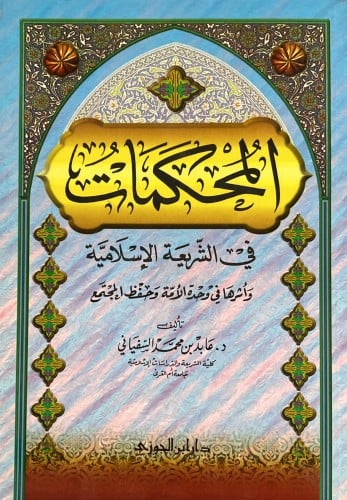 المُحْكَمَاتُ
في الشّريعَة الإسْلاميّة
وأثرها في وحدة الأمّة وحفظ المجتمع
تأليف
د. عَابد بن محمّد السّفياني
كلية الشريعة والدراسات الإسلامية
جامعة أم القرى
دار ابن الجوزي